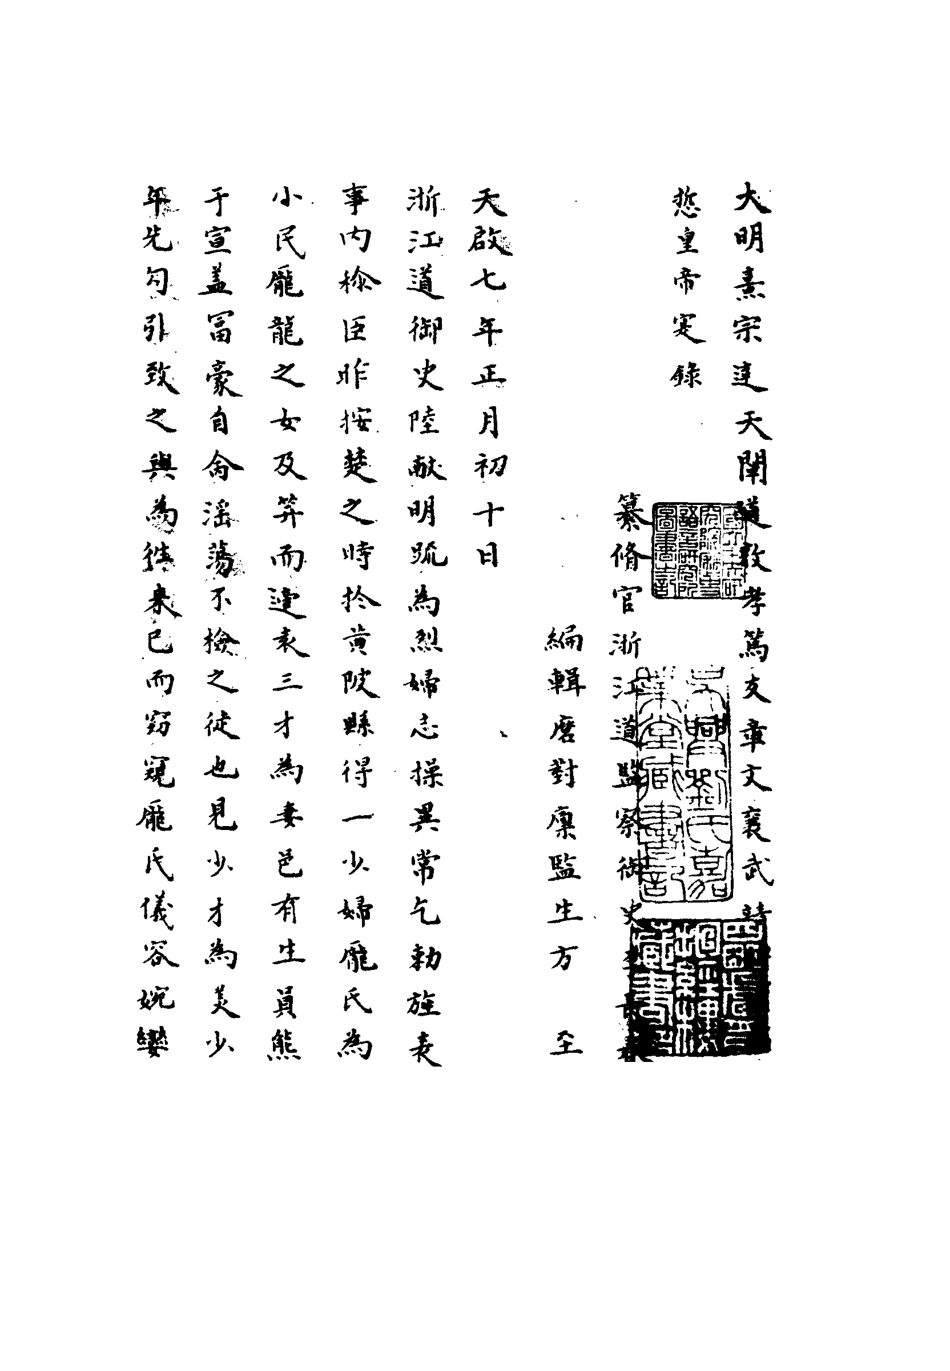 大明熹宗達天闡道敦孝篤友章文襄武
悊皇帝寔錄
纂脩官浙江道監察御史李長春
編輯磨對廩監生方 至
天啟七年正月初十日
浙江道御史陸献明䟽為烈婦志操異常乞勅旌表
事內稱臣昨按楚之時扵黄陂縣得一少婦龐氏為
小民龐龍之女及笄而達表三才為妻邑有生員熊
于宣盖冨豪自喬滛蕩不檢之徒也見少才為美少
年先勾引致之與為徃來已而窃窺龐氏儀容婉孌